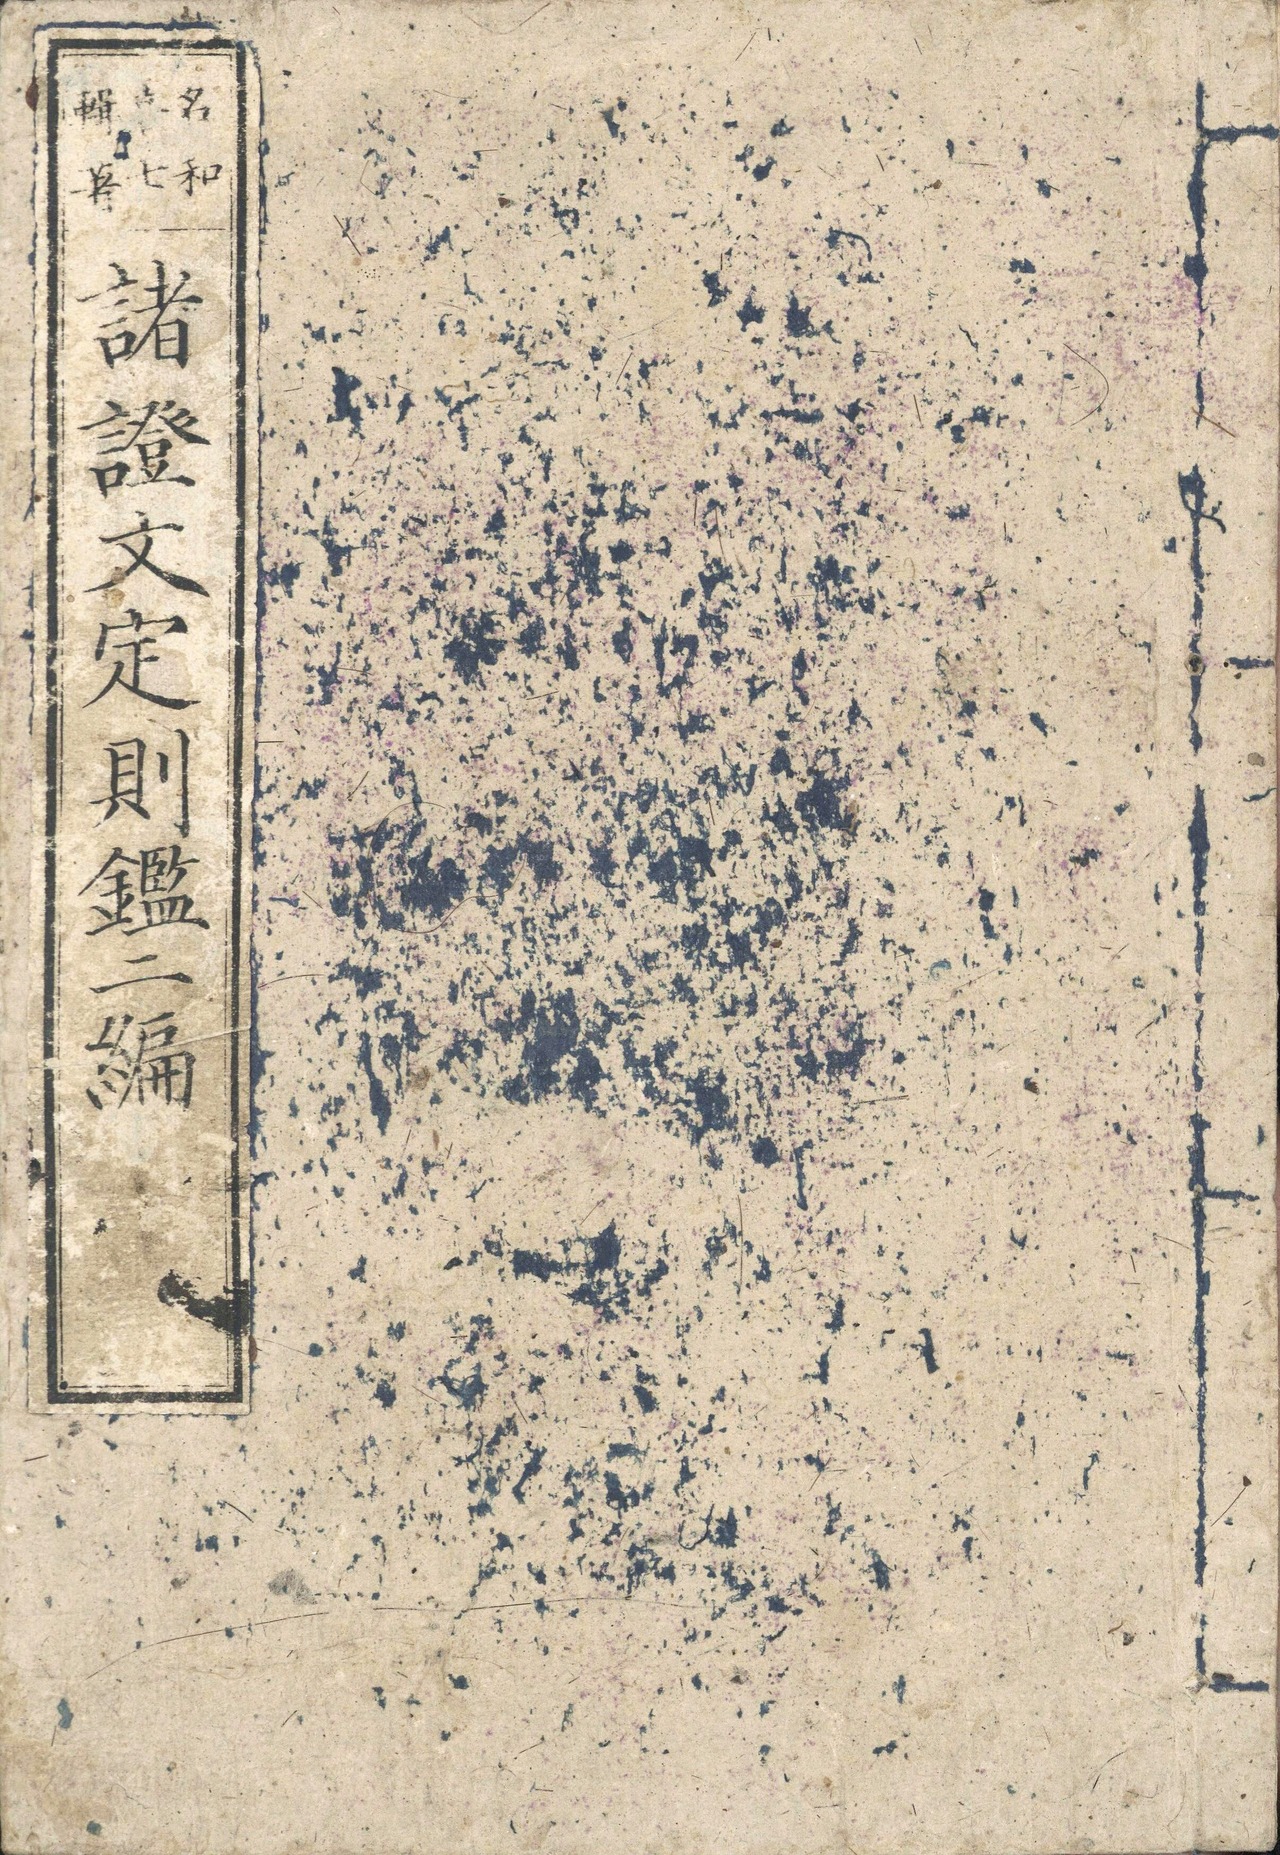 名和
七
輯
諸證文定則鑑二編